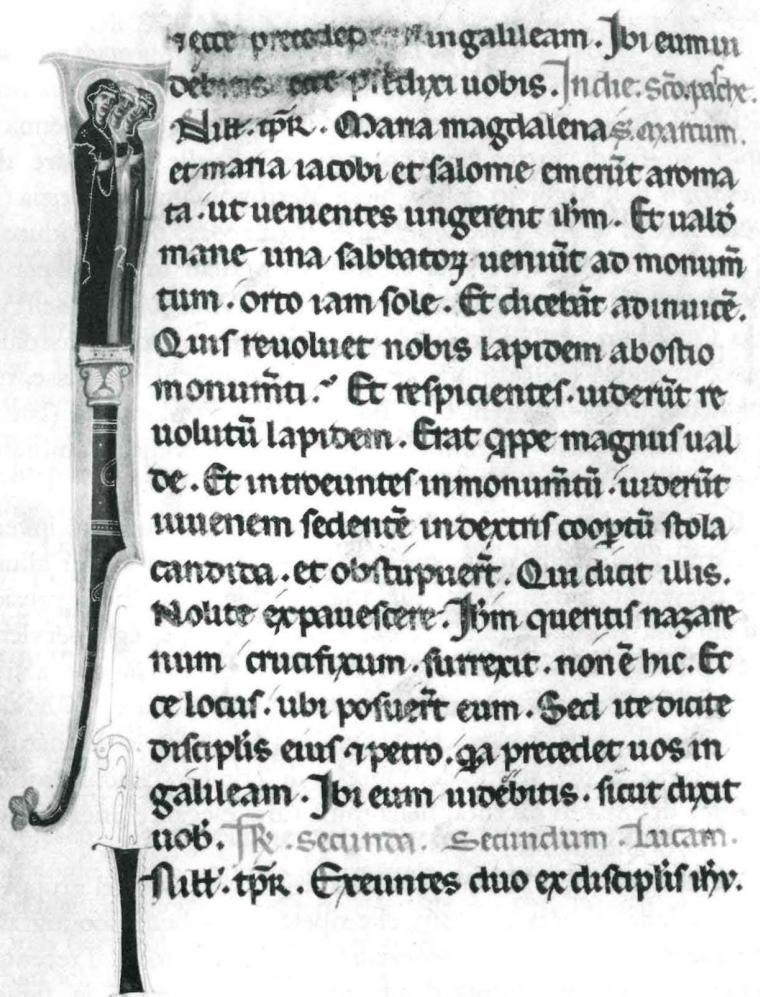 ⁊ ecce precedet ingalileam. Ibi eum ui
debitis. ecce p̄dixi uobis. In die. sc̄o. pasche.
Ill̄. tp̄r. Maria magdalena S. marcum.
et maria iacobi et salome emer̄ut aroma
ta. ut uenientes ungerent ih̄m. Et uald
mane una sabbatoꝝ ueni̅ut ad monum̄
tum. orto iam sole. Et diceba̅t ad inuicē.
Quis reuoluet nobis lapidem abostio
monum̄ti. Et respicientes. uider̄ut re
uolutū lapidem. Erat q̇ppe magnus ual
de. Et introeuntes inmonum̄tū. uider̄ut
iuuenem sedentē indextris cooptū stola
candida. et obstupuer̄t. Qui dicit illis.
Nolite expauescere. Ih̄m queritis nazare
num crucifixum. surrexit. non ē hic. Ec
ce locus. ubi posuer̄t eum. Sed ite dicite
discipl̄is eius ⁊ petro. qa precedet uos in
galileam. Ibi eum uidebitis. sicut dixit
uob̄. Fr̄. secunda. Secundum Lucam.
In ill̄. tp̄r. Exeuntes duo ex discipl̄is ih̄u.